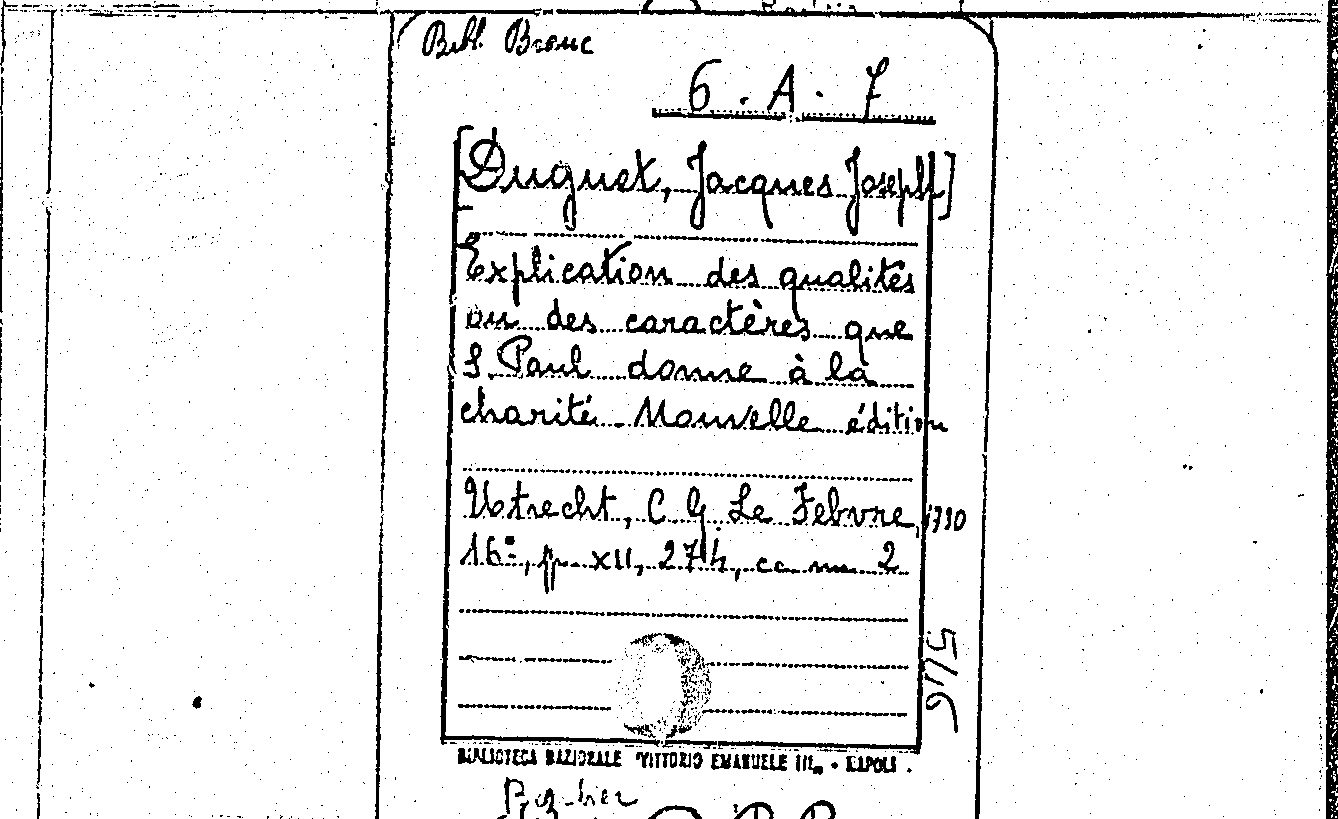 Bibl. Branc
6. A. 7
[Duguet, Jacques Joseph]
Explication des qualités
ou des caractères que
S. Paul donne à la
charité. Nouvelle édition
Utrecht, C. G. Le Febvre,
16º, pp. XII, 274, cc. nn. 2
546
BIBLIOTECA NAZIONALE "VITTORIO EMANUELE III" - NAPOLI.
Barbier